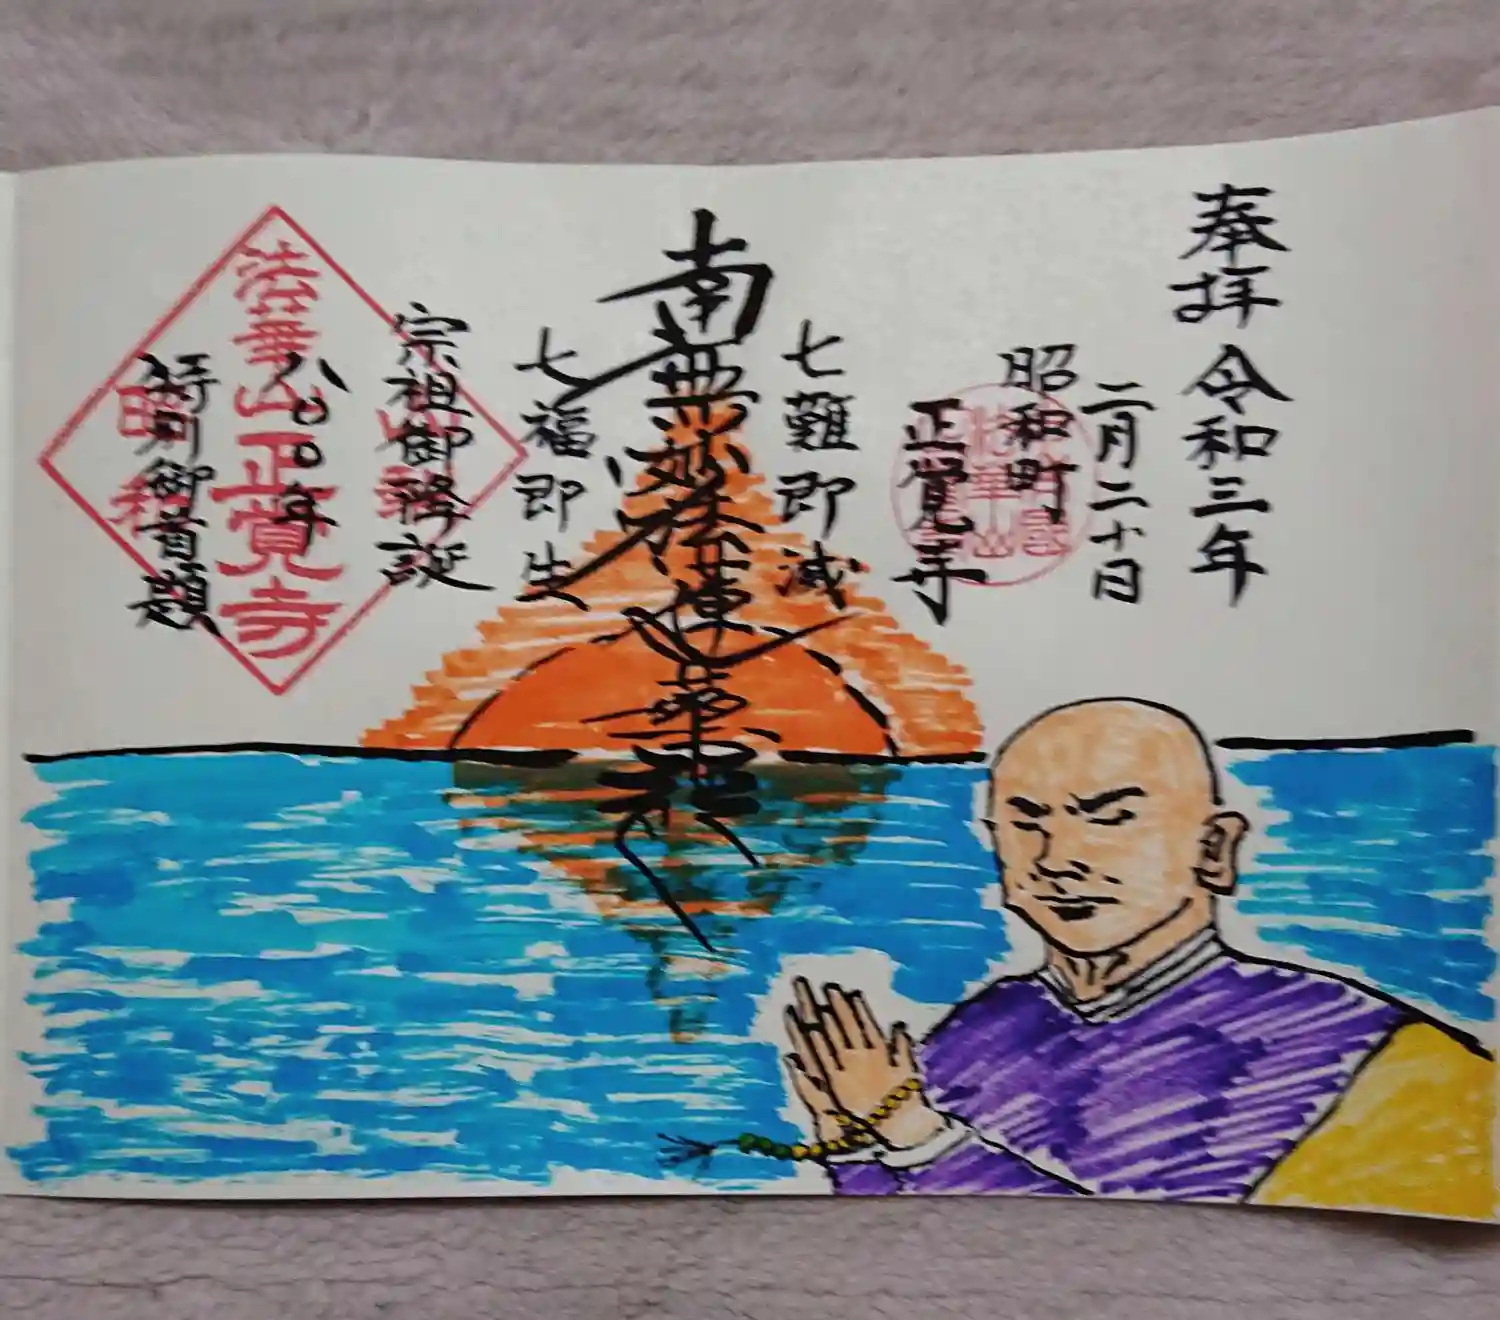 奉拝 令和三年
二月二十日
昭和町
正覚寺
七難即滅
南無妙法蓮華経
七福即生
宗祖御降誕
八〇〇年
特別御首題
法華山正覚寺
昭和